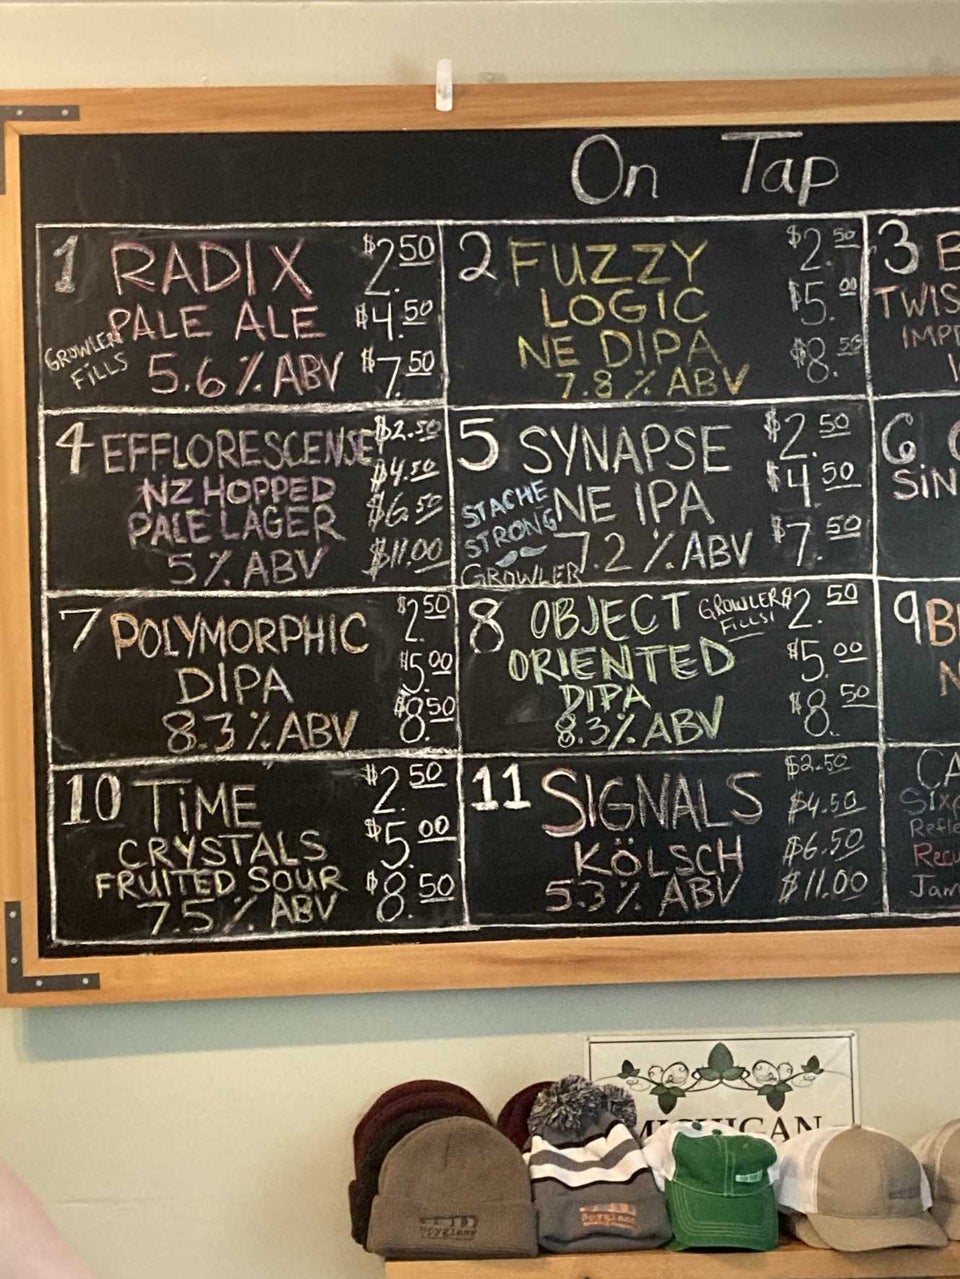 On Tap
1 RADIX $2.50
PALE ALE $4.50
GROWLER FILLS
5.6% ABV $7.50
2 FUZZY $2.50
LOGIC $5.00
NE DIPA $8.50
7.8% ABV
3
TWIS
IMP
4 EFFLORESCENSE $2.50
NZ HOPPED $4.50
PALE LAGER $6.50
5% ABV $11.00
5 SYNAPSE $2.50
STACHE STRONG
NE IPA $4.50
7.2% ABV $7.50
GROWLER
6
SiN
7 POLYMORPHIC $2.50
DIPA $5.00
8.3% ABV $8.50
8 OBJECT GROWLER FILLS! $2.50
ORIENTED $5.00
DIPA $8.50
8.3% ABV
9
10 TiME $2.50
CRYSTALS $5.00
FRUITED SOUR $8.50
7.5% ABV
11 SIGNALS $2.50
$4.50
KÖLSCH $6.50
5.3% ABV $11.00
CA
Six
Refle
Recu
Jam
MICHIGAN